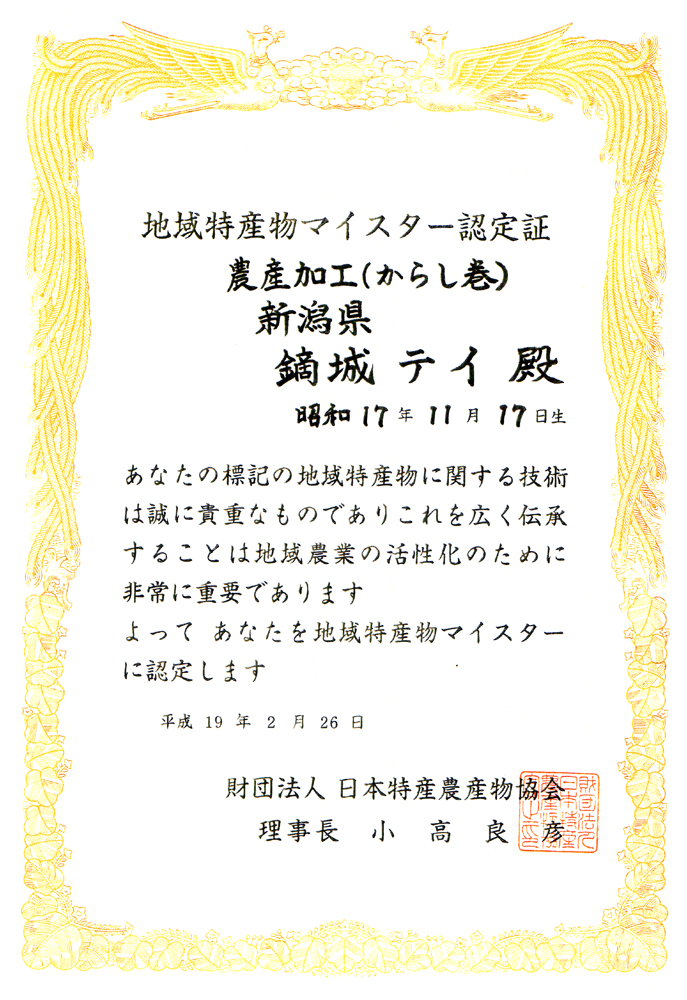 地域特産物マイスター認定証
農産加工(からし巻)
新潟県
鏑城 テイ 殿
昭和17年11月17日生
あなたの標記の地域特産物に関する技術
は誠に貴重なものでありこれを広く伝承
することは地域農業の活性化のために
非常に重要であります
よって あなたを地域特産物マイスター
に認定します
平成 19 年 2 月 26 日
財団法人 日本特産農産物協会
理事長 小高良彦